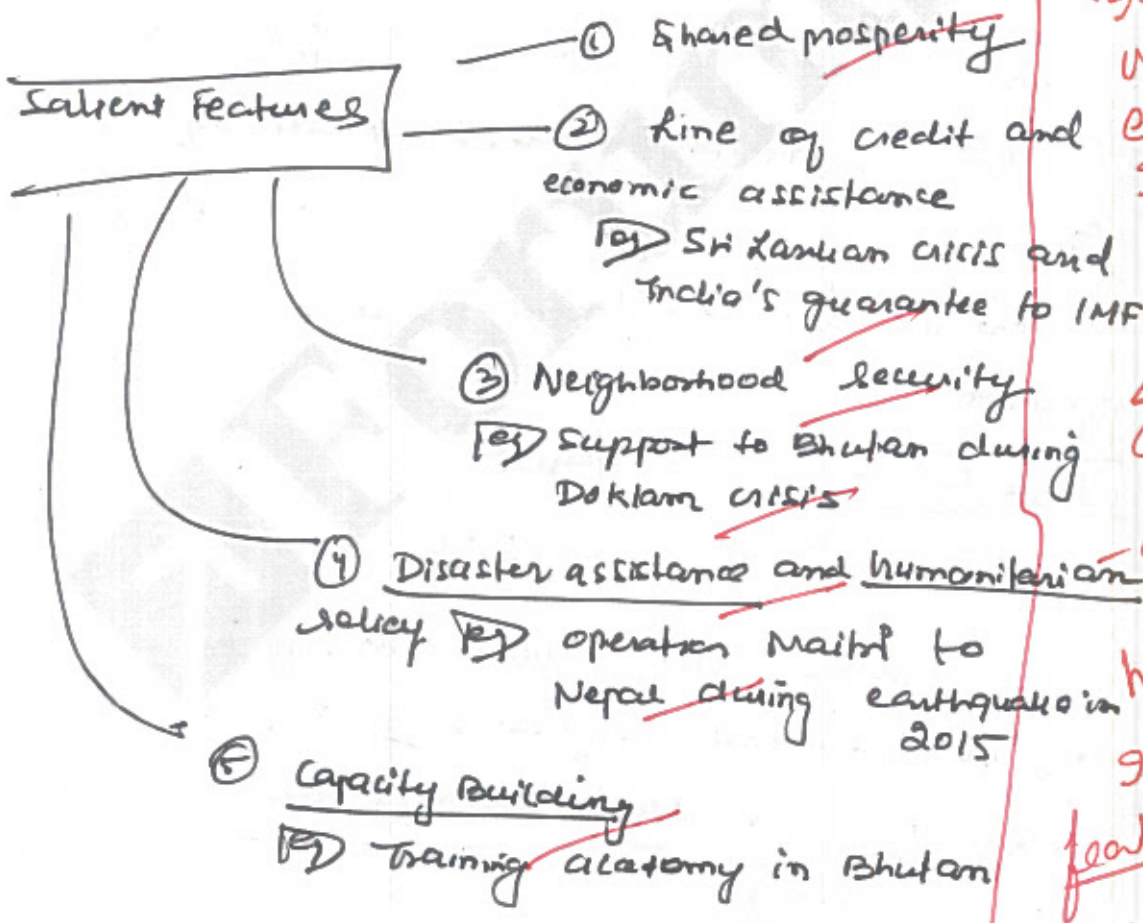 Salient Features
① Shared prosperity
② Line of credit and
economic assistance
eg Sri Lankan crisis and
India's guarantee to IMF
③ Neighborhood security
eg Support to Bhutan during
Doklam crisis
④ Disaster assistance and humanitarian
policy eg operation Maitri to
Nepal during earthquake in
2015
⑤ Capacity Building
eg Training academy in Bhutan